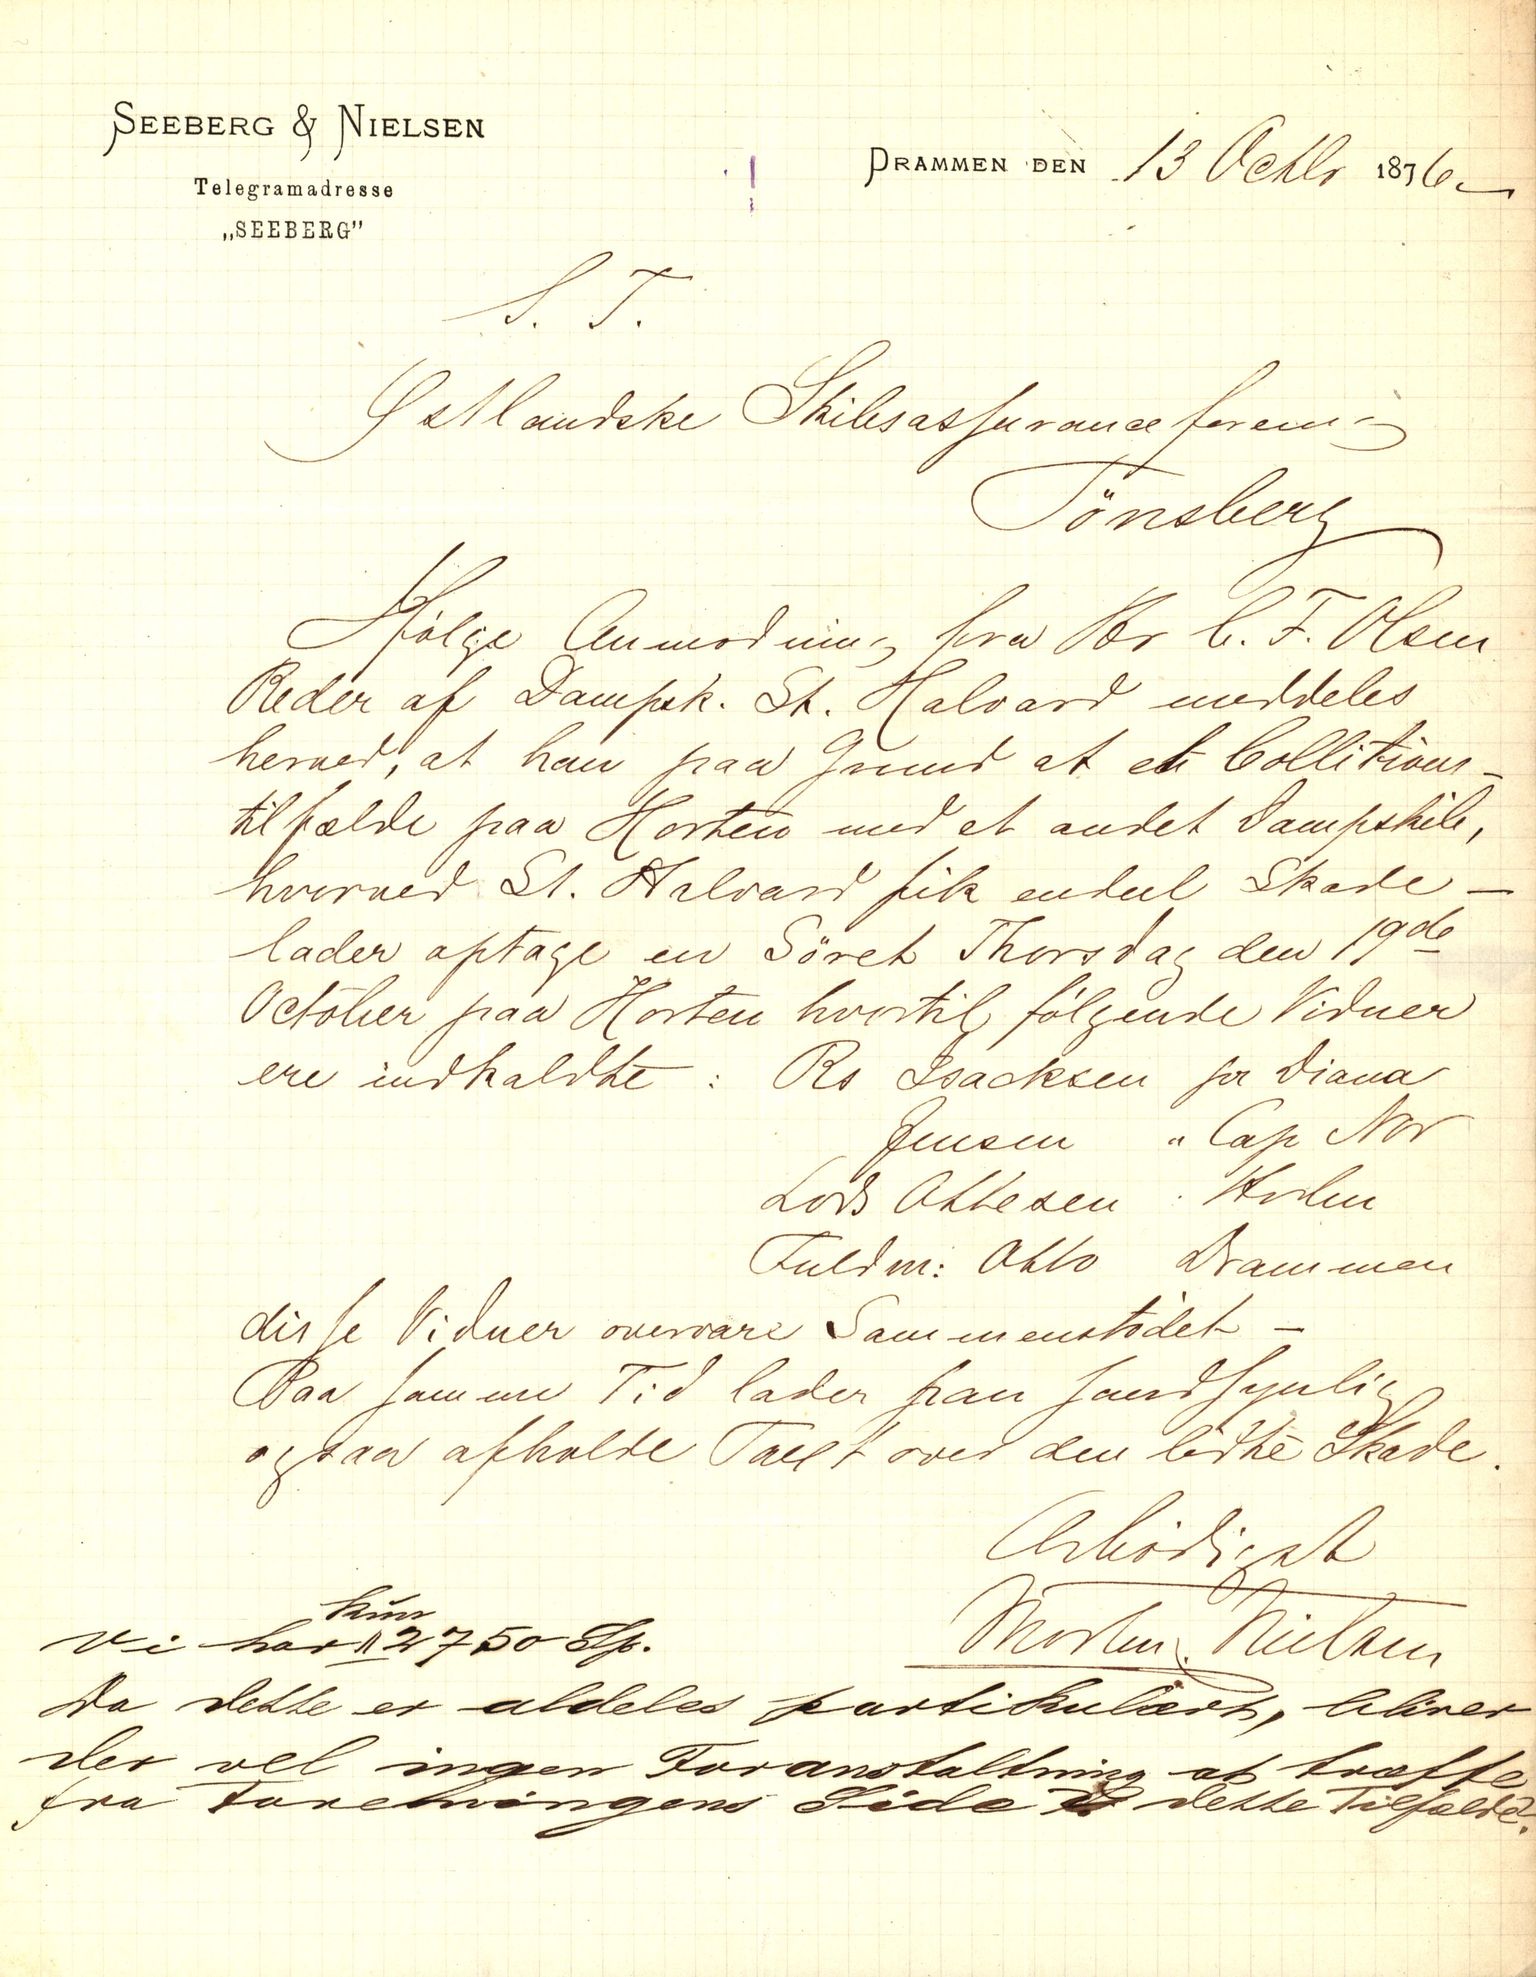 SEEBERG & NIELSEN
Telegramadresse
„SEEBERG”
DRAMMEN DEN 13 Octbr 1876
S. T.
Östlandske Skibsassuranceforening
Tönsberg
Ifölge Anmodning fra Hr C. F. Olsen
Reder af Dampsk. St. Halvard meddeles
herved, at han paa Grund at et Collitions-
tilfælde paa Horten med et andet Dampskib,
hvorved St. Halvard fik endeel Skade –
lader optage en Söret Thorsdag den 19de
October paa Horten hvortil fölgende Vidner
ere indkaldte : Rs Isacksen pr Diana
Jensen " Cap Nor
Lods Ottesen Holm
Fuldm: Otto Drammen
disse Vidner overvare Sammenstödet –
Paa samme Tid lader han sandsynlig
ogsaa afholde Taxt over den lidte Skade.
Ærbödigst
Morten Nielsen
kun
Vi har 2750 Sp.
Da dette er aldeles partikulært, bliver
der vel ingen Foranstaltning at træffe
fra Foreningens Side i dette Tilfælde?